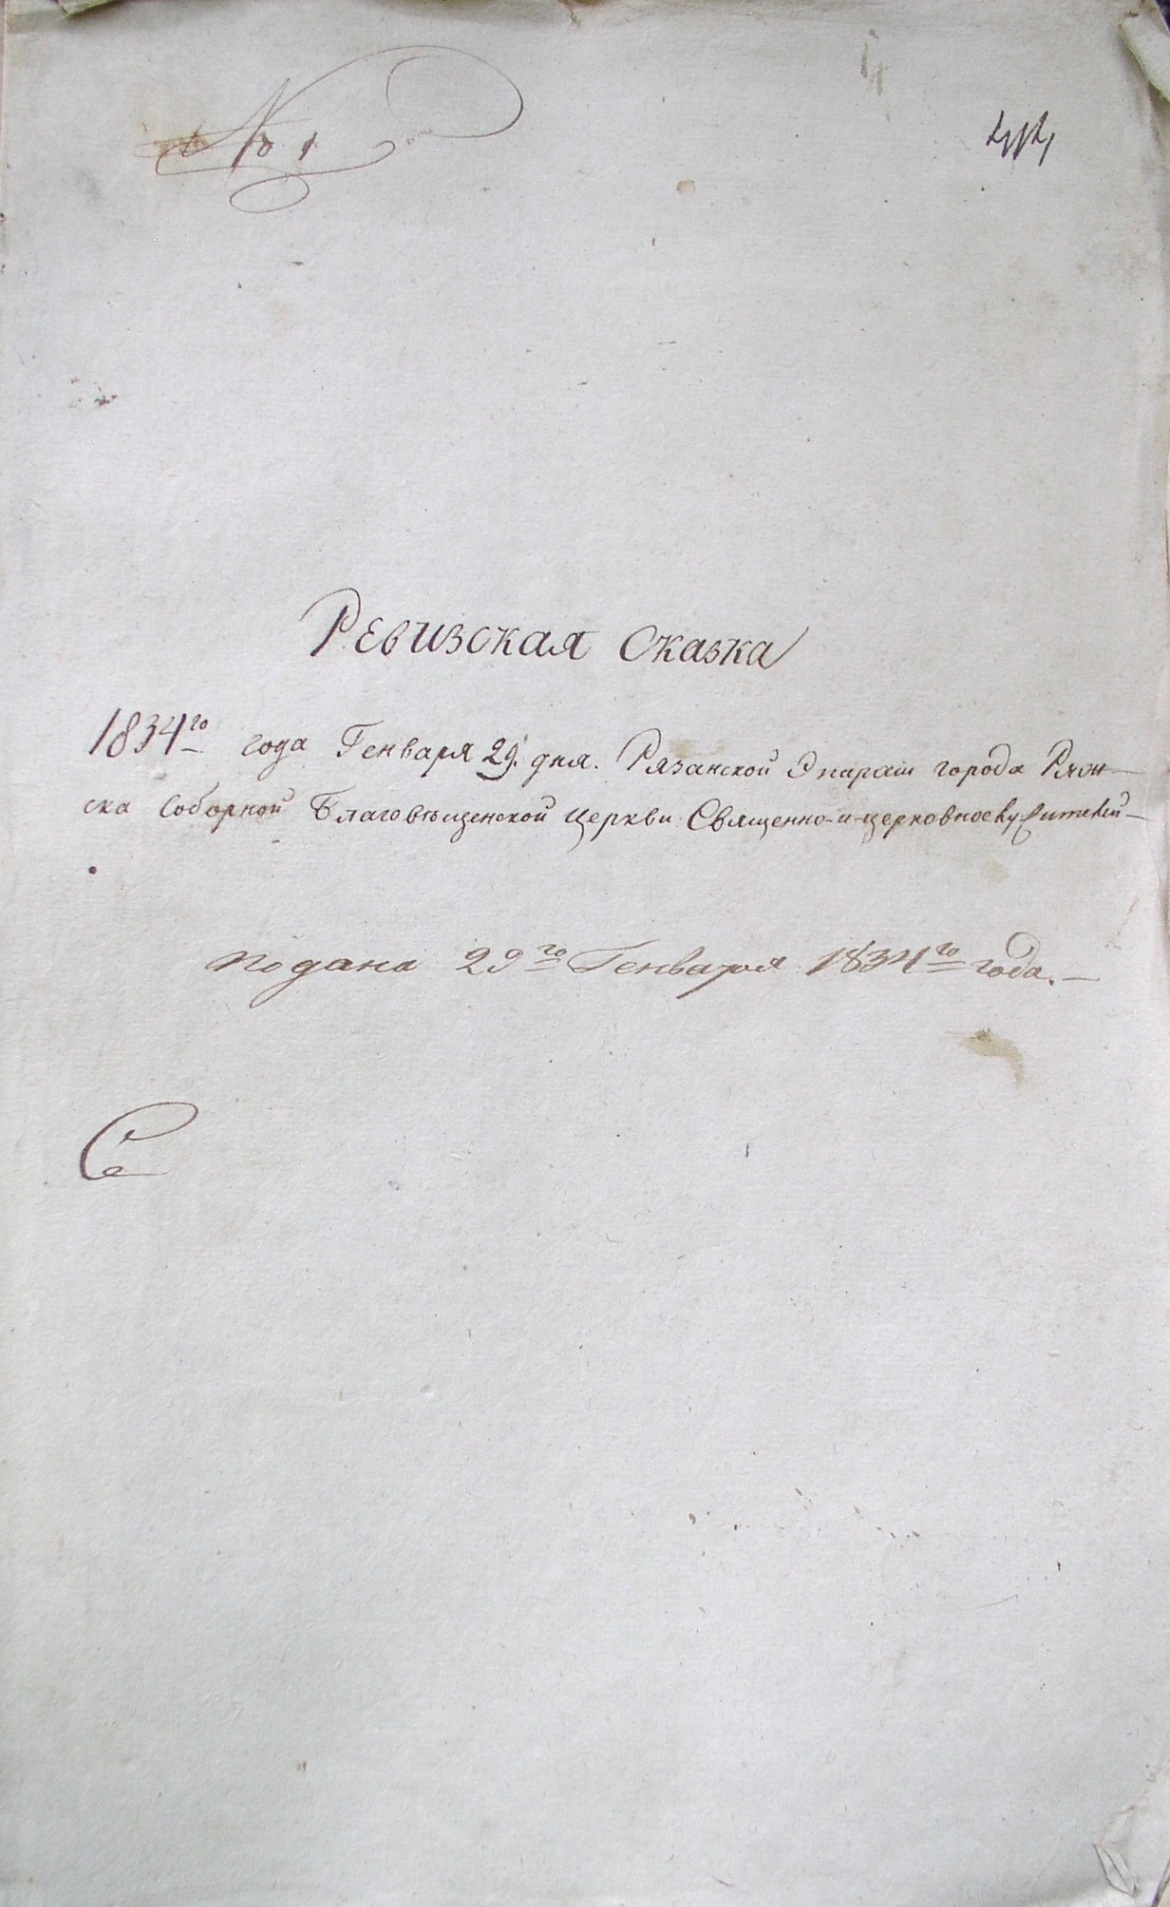 № 1
Ревизская Сказка
1834го года Генваря 29. дня. Рязанской Эпархіи города Ряж-
ска Соборной Благовѣщенской Церкви Священно-и-церковнослужителей
подана 29го Генваря 1834го года.